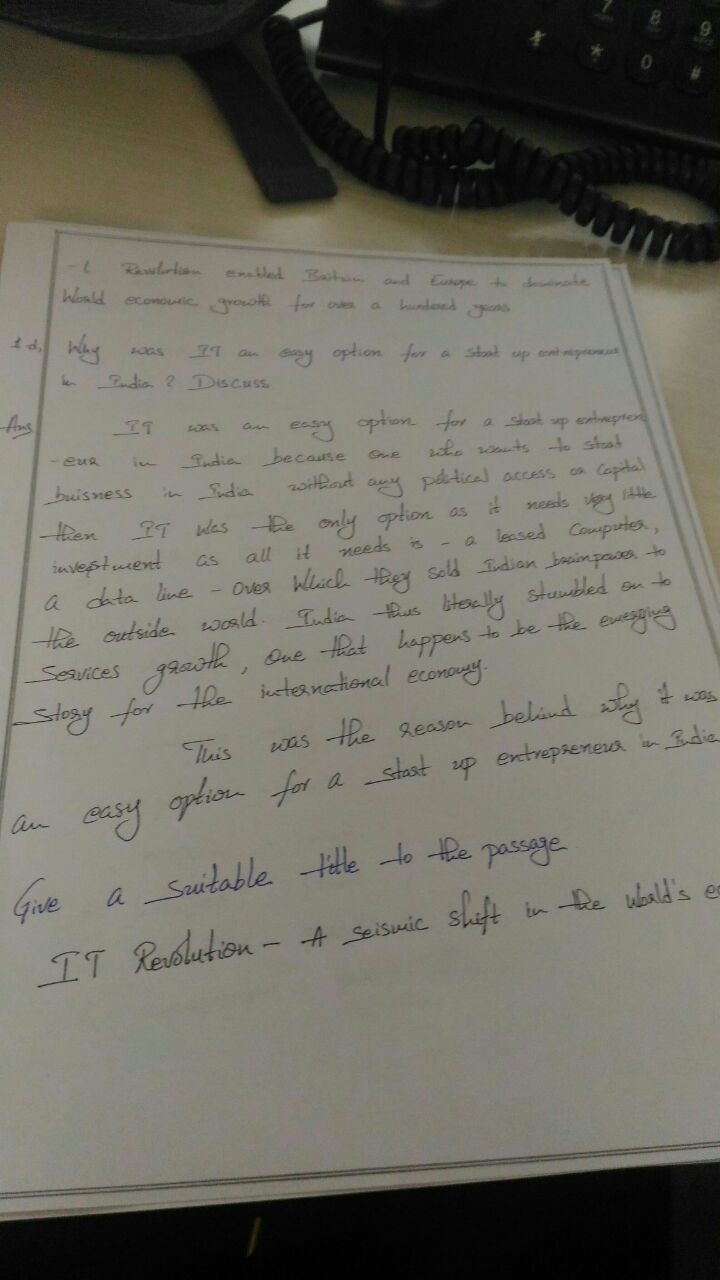 7 8 9
* 0 #
-l Revolution enabled Britain and Europe to dominate
World economic growth for over a hundred years
1 d, Why was IT an easy option for a start up entrepreneur
in India? Discuss
Ans IT was an easy option for a start up entrepren
-eur in India because one who wants to start
buisness in India without any political access or Capital
then IT was the only option as it needs very little
investment as all it needs is - a leased Computer,
a data line - over which they sold Indian brainpower to
the outside world. India thus literally stumbled on to
Services growth, one that happens to be the emerging
Story for the international economy.
This was the reason behind why it was
an easy option for a start up entrepreneur in India
Give a suitable title to the passage
IT Revolution - A seismic shift in the world's